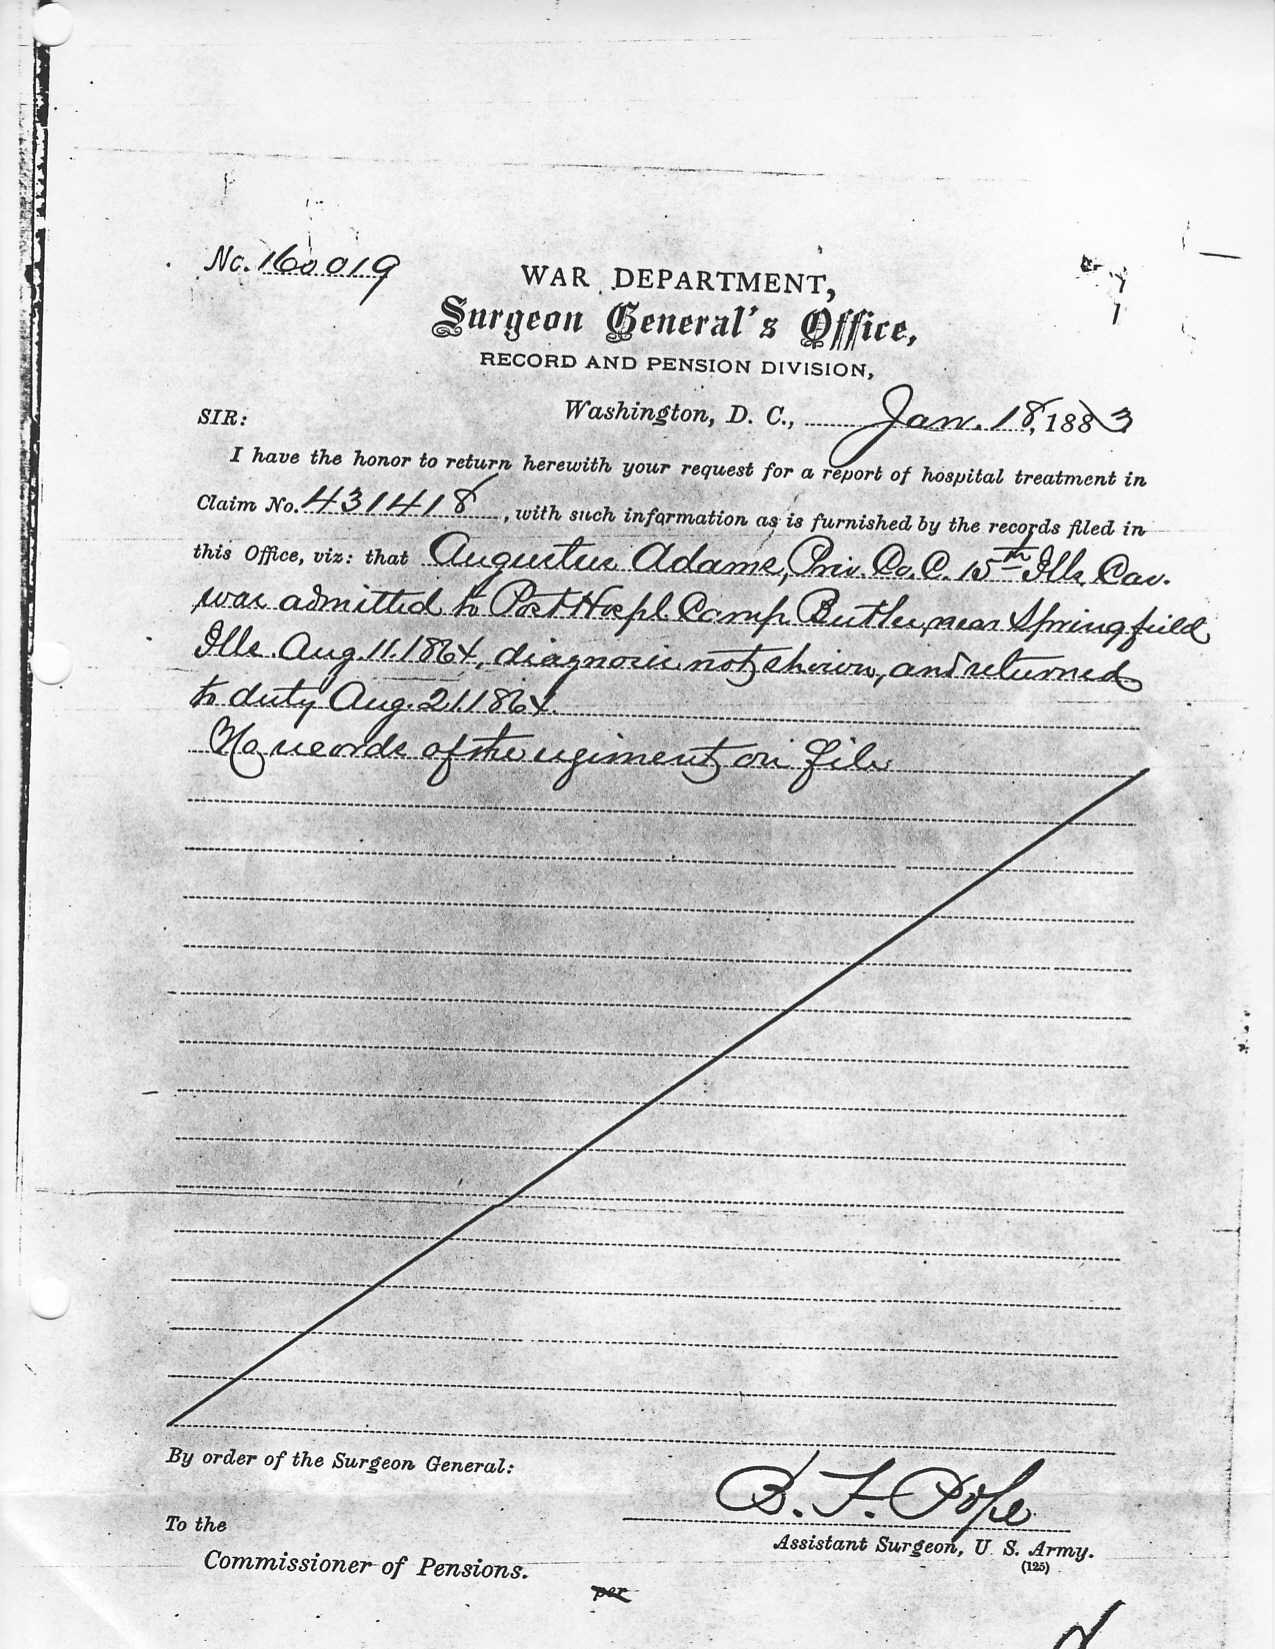 No. 160019
WAR DEPARTMENT,
Surgeon General's Office,
RECORD AND PENSION DIVISION,
Washington, D. C., Jan. 18, 1883
SIR:
I have the honor to return herewith your request for a report of hospital treatment in
Claim No. 431418, with such information as is furnished by the records filed in
this Office, viz: that Augustus Adams, Priv. Co. C. 15th Ills. Cav.
was admitted to Post Hospl Camp Butler, near Springfield
Ills. Aug. 11. 1864, diagnosis not shown, and returned
to duty Aug. 21 1864.
No records of the regiment on file
By order of the Surgeon General:
B. F. Pope
Assistant Surgeon, U. S. Army.
(125)
To the
Commissioner of Pensions.
per